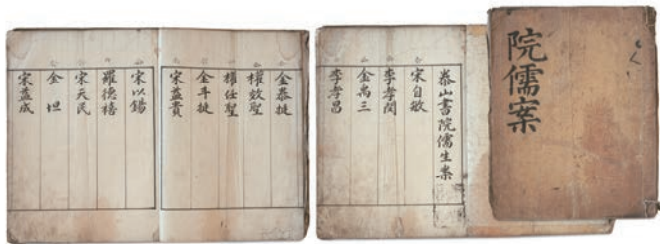 院儒案
泰山書院儒生案
宋自敏
李孝閔
金禹三
李孝昌
金泰挺
權斅聖
權任聖
金斗挺
宋益貴
宋以錫
羅德禧
宋天民
金坦
宋益成